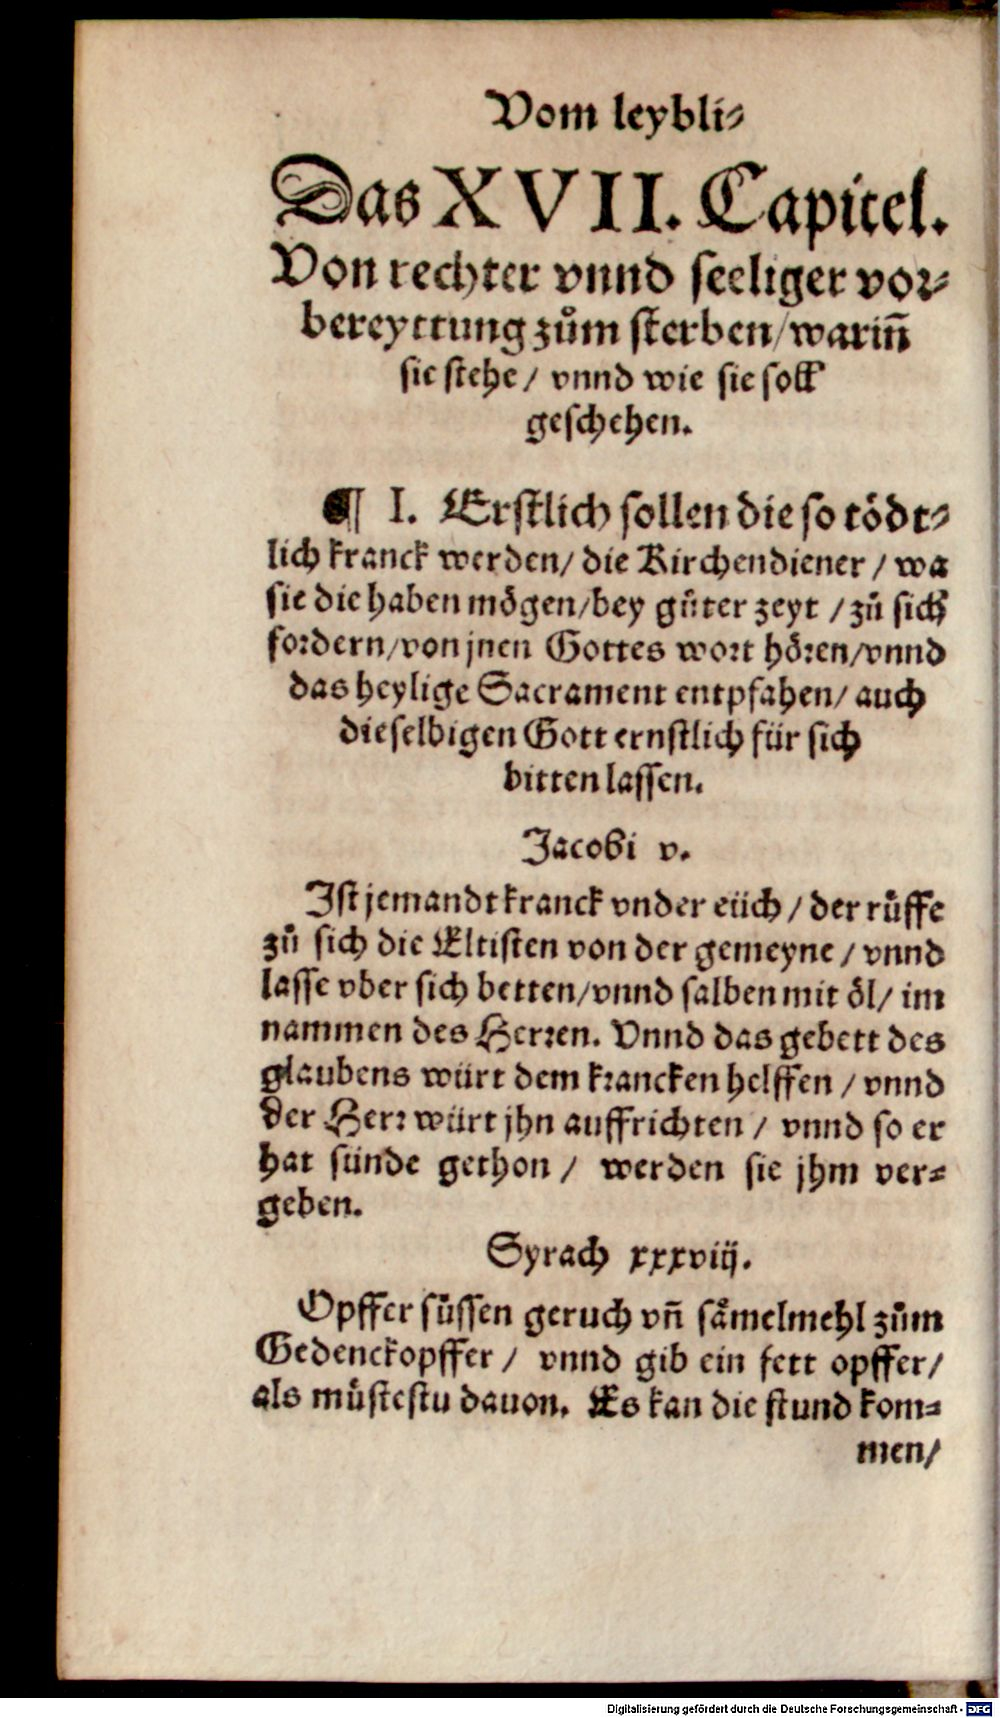 Vom leybli⸗
Das XVII. Capitel.
Von rechter vnnd seeliger vor⸗
bereyttung zům sterben/ warin̄
sie stehe/ vnnd wie sie soll
geschehen.
¶ I. Erstlich sollen die so tödt⸗
lich kranck werden/ die Kirchendiener / wa
sie die haben mögen/ bey gůter zeyt / zů sich
fordern/ von jnen Gottes wort hören/ vnnd
das heylige Sacrament entpfahen/ auch
dieselbigen Gott ernstlich für sich
bitten lassen.
Jacobi v.
Ist jemandt kranck vnder eüch / der růffe
zů sich die Eltisten von der gemeyne / vnnd
lasse vber sich betten/ vnnd salben mit öl/ im
nammen des Herren. Vnnd das gebett des
glaubens würt dem krancken helffen / vnnd
der Herr würt jhn auffrichten / vnnd so er
hat sünde gethon / werden sie jhm ver⸗
geben.
Syrach xxxviij.
Opffer süssen geruch vn̄ såmelmehl zům
Gedenckopffer / vnnd gib ein fett opffer/
als můstestu dauon. Es kan die stund kom⸗
men/
Digitalisierung gefördert durch die Deutsche Forschungsgemeinschaft - DFG